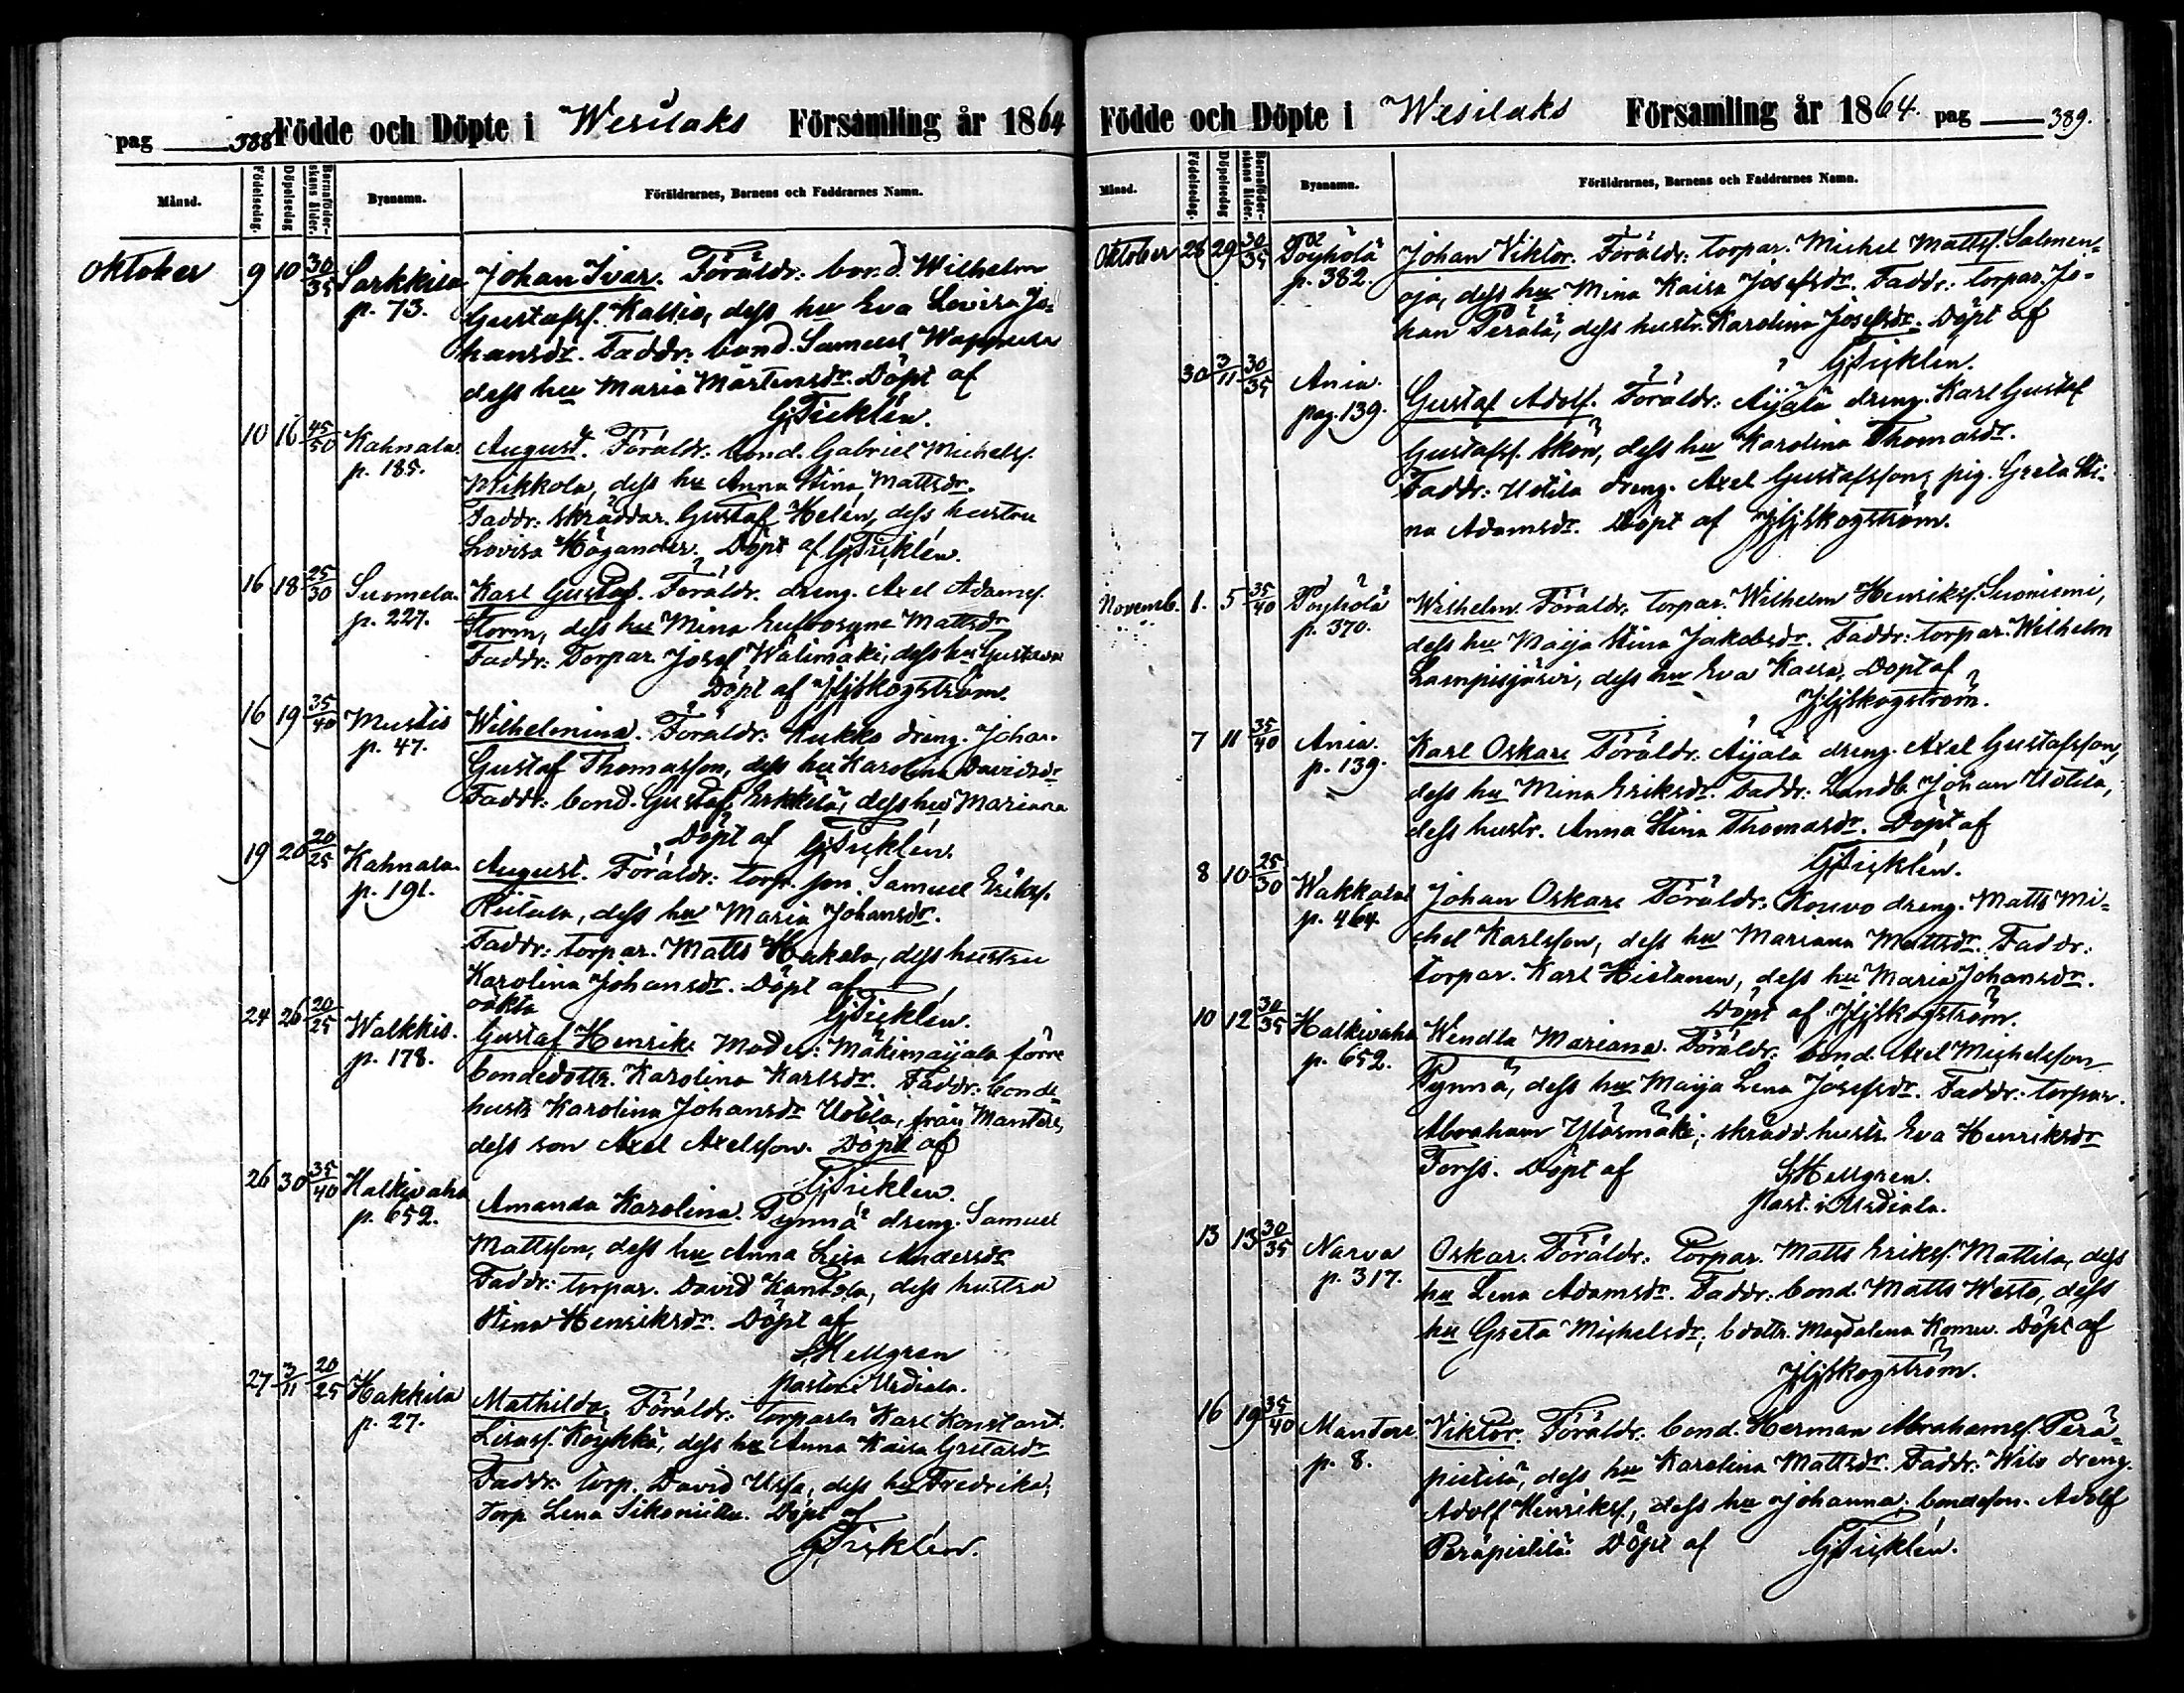 pag 388 Födde och Döpte i Wesilaks Församling år 1864
Månad. Födelsedag. Döpelsedag Barnaföder-skans ålder. Byanamn. Föräldrarnes, Barnens och Faddrarnes Namn.
Oktober 9 10 30/35 Sarkkila Johan Ivar. Föräldr: bond. Wilhelm
p. 73. Gustafss. Kallio, dess hu Eva Lovisa Jo-
hansdr. Faddr: bond. Samuel
dess hu Maria Mårtensdr. Döpt af
G Ticklén.
10 16 45/50 Kahnala August. Föräldr: bond. Gabriel Michelss.
p. 185. Mikkola, dess hu Anna Stina Mattsdr.
Faddr: skräddar. Gustaf Helén, dess hustru
Lovisa Högander. Döpt af G Ticklén.
16 18 25/30 Suomela Karl Gustaf. Föräldr. dreng. Axel Adamss.
p. 227. Storm, dess hu Mina Eufrosyne Mattsdr
Faddr: Torpar. Josef Wälimäki, dess hu Gustava
Döpt af Skogström.
16 19 35/40 Mustis Wilhelmina. Föräldr: Kukko dreng. Johan
p. 47. Gustaf Thomasson, dess hu Karolina Davidsdr
Faddr: bond. Gustaf Erkkilä, dess hu Mariana
Döpt af G Ticklén.
19 20 20/25 Kahnala August. Föräldr: torp. son. Samuel Erikss.
p. 191. dess hu Maria Johansdr.
Faddr: torpar. Matts Hakala, dess hustru
Karolina Johansdr. Döpt af
G Ticklén.
oäkta
24 26 20/25 Walkkis. Gustaf Henrik. Moder: Mäkimaijala förre
p. 178. bondedottr. Karolina Karlsdr. Faddr: bonde-
hustr Karolina Johansdr Uotila, från Mantere,
dess son Axel Axelsson. Döpt af
G Ticklén.
26 30 35/40 Halkivaha Amanda Karolina. Pynnä dreng. Samuel
p. 652. Mattsson, dess hu Anna Lisa Andersdr
Faddr: torpar. David Kantola, dess hustru
Stina Henriksdr. Döpt af
Hellgren
Pastor i Urdiala.
27 3/11 20/25 Hakkila Mathilda. Föräldr: torparen Karl Konstant.
p. 27. Köykkä, dess hu Anna Kaisa Gretasdr
Faddr: torp. David dess hu Fredrika,
Torp. Lena Döpt af
G Ticklén.
Födde och Döpte i Wesilaks Församling år 1864. pag 389.
Månad. Födelsedag. Döpelsedag Barnaföder-skans ålder. Byanamn. Föräldrarnes, Barnens och Faddrarnes Namn.
Oktober 28 29 30/35 Pöyhölä Johan Viktor. Föräldr: torpar. Michel Mattss. Salmen-
p. 382. oja, dess hu Mina Kaisa Josefsdr. Faddr: torpar. Jo-
han Perälä, dess hustr. Karolina Josefsdr. Döpt af
G Ticklén.
30 3/11 30/35 Ania. Gustaf Adolf. Föräldr: Äijälä dreng. Karl Gustaf
pag. 139. Gustafss. Skön, dess hu Karolina Thomasdr.
Faddr: Uotila dreng. Axel Gustafsson, pig. Greta Sti-
na Adamsdr. Döpt af Skogström.
Novemb. 1. 5 35/40 Pöyhölä Wilhelm. Föräldr. torpar. Wilhelm Henrikss. Suoniemi,
p. 370. dess hu Maija Stina Jakobsdr. Faddr: torpar. Wilhelm
Lampisjärvi, dess hu Eva Kaisa. Döpt af
Skogström.
7 11 35/40 Ania. Karl Oskar. Föräldr. Äijälä dreng. Axel Gustafsson,
p. 139. dess hu Mina Eriksdr. Faddr: Landb. Johan Uotila,
dess hustr. Anna Stina Thomasdr. Döpt af
G Ticklén.
8 10 25/30 Wakkala Johan Oskar. Föräldr. Kouvo dreng. Matts Mi-
p. 464 chel Karlsson, dess hu Mariana Mattsdr. Faddr:
torpar. Karl Hietanen, dess hu Maria Johansdr.
Döpt af Skogström.
10 12 30/35 Halkivaha Wendla Mariana. Föräldr. bond. Axel Michelsson
p. 652. Pynnä, dess hu Maija Lena Josefsdr. Faddr: torpar.
Abraham Ylösmäki; skrädd. hustr. Eva Henriksdr
Forss. Döpt af Hellgren.
Past. i Urdiala.
13 13 30/35 Narva Oskar. Föräldr. torpar. Matts Erikss. Mattila, dess
p. 317. hu Lena Adamsdr. Faddr: bond. Matts Westo, dess
hu Greta Michelsdr, bdottr. Magdalena Döpt af
Skogström.
16 19 35/40 Mantere Viktor. Föräldr. bond. Herman Abrahamss. Perä-
p. 8. pietilä, dess hu Karolina Mattsdr. Faddr: dreng.
Adolf Henrikss., dess hu Johanna, bondeson. Adolf
Peräpietilä. Döpt af G Ticklén.